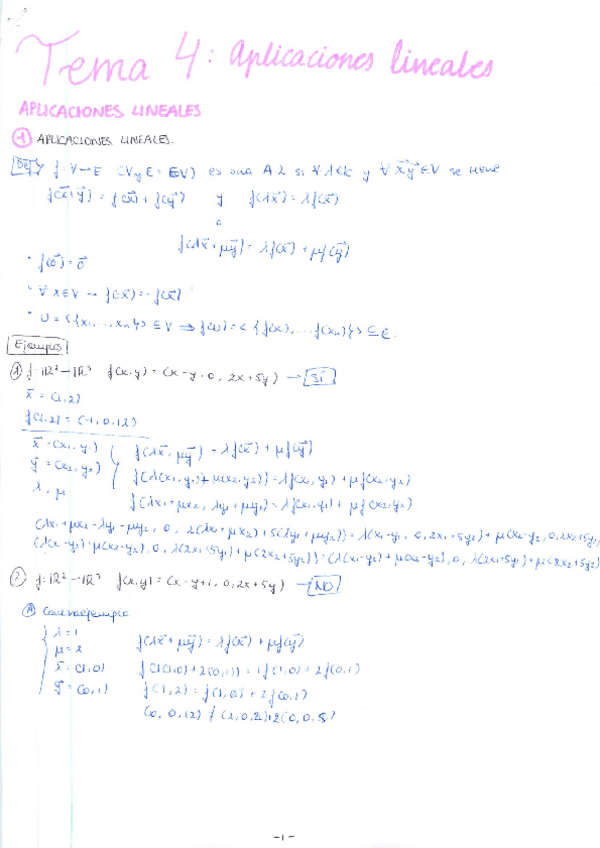 Tema 4: Aplicaciones lineales
APLICACIONES LINEALES
1 APLICACIONES LINEALES.
Def f: V→E (V y E = EV) es una AL si ∀ λ∈K y ∀ x⃗,y⃗ ∈V se tiene
f(x⃗+y⃗) = f(x⃗) + f(y⃗) y f(λx⃗) = λf(x⃗)
o
f(λx⃗+μy⃗) = λf(x⃗) + μf(y⃗)
• f(0⃗) = 0⃗
• ∀ x∈V → f(-x⃗) = -f(x⃗)
• U = <{x₁,...,xₙ}> ⊆ V ⇒ f(U) = <{f(x₁),...,f(xₙ)}> ⊆ E
Ejemplo
1) f: ℝ² → ℝ³ f(x,y) = (x-y, 0, 2x+5y) → SÍ
x⃗ = (1,2)
f(1,2) = (-1,0,12)
x⃗ = (x₁,y₁) f(λx⃗, μy⃗) = λf(x⃗) + μf(y⃗)
y⃗ = (x₂,y₂) f(λ(x₁,y₁)+μ(x₂,y₂)) = λf(x₁,y₁) + μf(x₂,y₂)
λ, μ f(λx₁+μx₂, λy₁+μy₂) = λf(x₁,y₁) + μf(x₂,y₂)
(λx₁+μx₂-λy₁-μy₂, 0, 2(λx₁+μx₂)+5(λy₁+μy₂)) = λ(x₁-y₁, 0, 2x₁+5y₁) + μ(x₂-y₂, 0, 2x₂+5y₂)
2) f: ℝ² → ℝ³ f(x,y) = (x-y+1, 0, 2x+5y) → NO
A Contraejemplo
λ=1 f(λx⃗+μy⃗) = λf(x⃗) + μf(y⃗)
μ=2
x⃗=(1,0) f(1(1,0)+2(0,1)) = 1f(1,0) + 2f(0,1)
y⃗=(0,1) f(1,2) = f(1,0) + 2f(0,1)
(0,0,12) ≠ (2,0,2)+2(0,0,5)
-1-